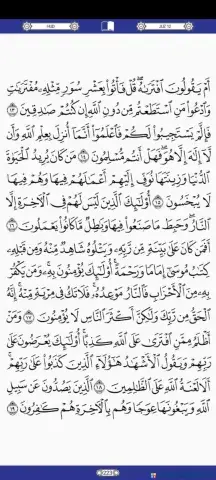 HUD
JUZ 12
أَمْ يَقُولُونَ افْتَرَىٰهُ قُلْ فَأْتُوا بِعَشْرِ سُوَرٍ مِّثْلِهِ مُفْتَرَيَٰتٍ
وَادْعُوا مَنِ اسْتَطَعْتُم مِّن دُونِ اللَّهِ إِن كُنتُمْ صَٰدِقِينَ ١٣
فَإِلَّمْ يَسْتَجِيبُوا لَكُمْ فَاعْلَمُوا أَنَّمَا أُنزِلَ بِعِلْمِ اللَّهِ وَأَن
لَّا إِلَٰهَ إِلَّا هُوَ فَهَلْ أَنتُم مُّسْلِمُونَ ١٤ مَن كَانَ يُرِيدُ الْحَيَوٰةَ
الدُّنْيَا وَزِينَتَهَا نُوَفِّ إِلَيْهِمْ أَعْمَٰلَهُمْ فِيهَا وَهُمْ فِيهَا
لَا يُبْخَسُونَ ١٥ أُولَٰئِكَ الَّذِينَ لَيْسَ لَهُمْ فِي الْءَاخِرَةِ إِلَّا
النَّارُ وَحَبِطَ مَا صَنَعُوا فِيهَا وَبَٰطِلٌ مَّا كَانُوا يَعْمَلُونَ ١٦
أَفَمَن كَانَ عَلَىٰ بَيِّنَةٍ مِّن رَّبِّهِ وَيَتْلُوهُ شَاهِدٌ مِّنْهُ وَمِن قَبْلِهِ
كِتَٰبُ مُوسَىٰ إِمَامًا وَرَحْمَةً أُولَٰئِكَ يُؤْمِنُونَ بِهِ وَمَن يَكْفُرْ
بِهِ مِنَ الْأَحْزَابِ فَالنَّارُ مَوْعِدُهُ فَلَا تَكُ فِي مِرْيَةٍ مِّنْهُ إِنَّهُ
الْحَقُّ مِن رَّبِّكَ وَلَٰكِنَّ أَكْثَرَ النَّاسِ لَا يُؤْمِنُونَ ١٧ وَمَنْ
أَظْلَمُ مِمَّنِ افْتَرَىٰ عَلَى اللَّهِ كَذِبًا أُولَٰئِكَ يُعْرَضُونَ عَلَىٰ
رَبِّهِمْ وَيَقُولُ الْأَشْهَٰدُ هَٰؤُلَاءِ الَّذِينَ كَذَبُوا عَلَىٰ رَبِّهِمْ
أَلَا لَعْنَةُ اللَّهِ عَلَى الظَّٰلِمِينَ ١٨ الَّذِينَ يَصُدُّونَ عَن سَبِيلِ
اللَّهِ وَيَبْغُونَهَا عِوَجًا وَهُم بِالْءَاخِرَةِ هُمْ كَٰفِرُونَ ١٩
223